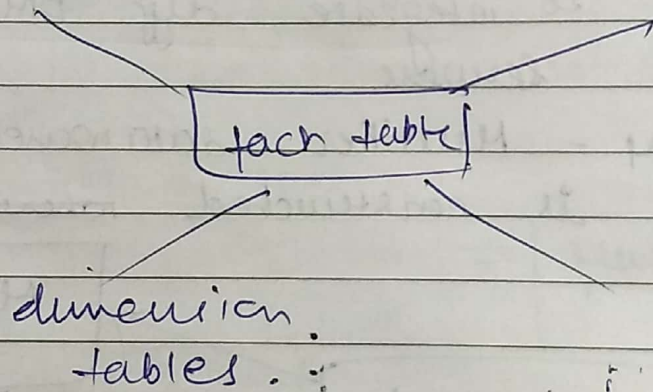 fach table
dimension
tables.